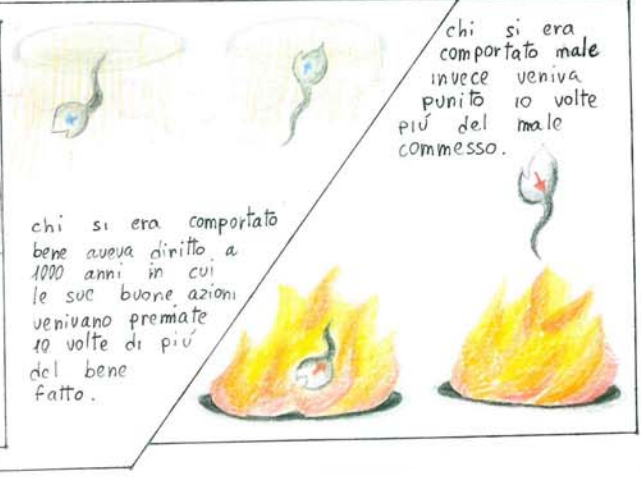 chi si era comportato
bene aveva diritto a
1000 anni in cui
le sue buone azioni
venivano premiate
10 volte di più
del bene
fatto.
chi si era
comportato male
invece veniva
punito 10 volte
più del male
commesso.